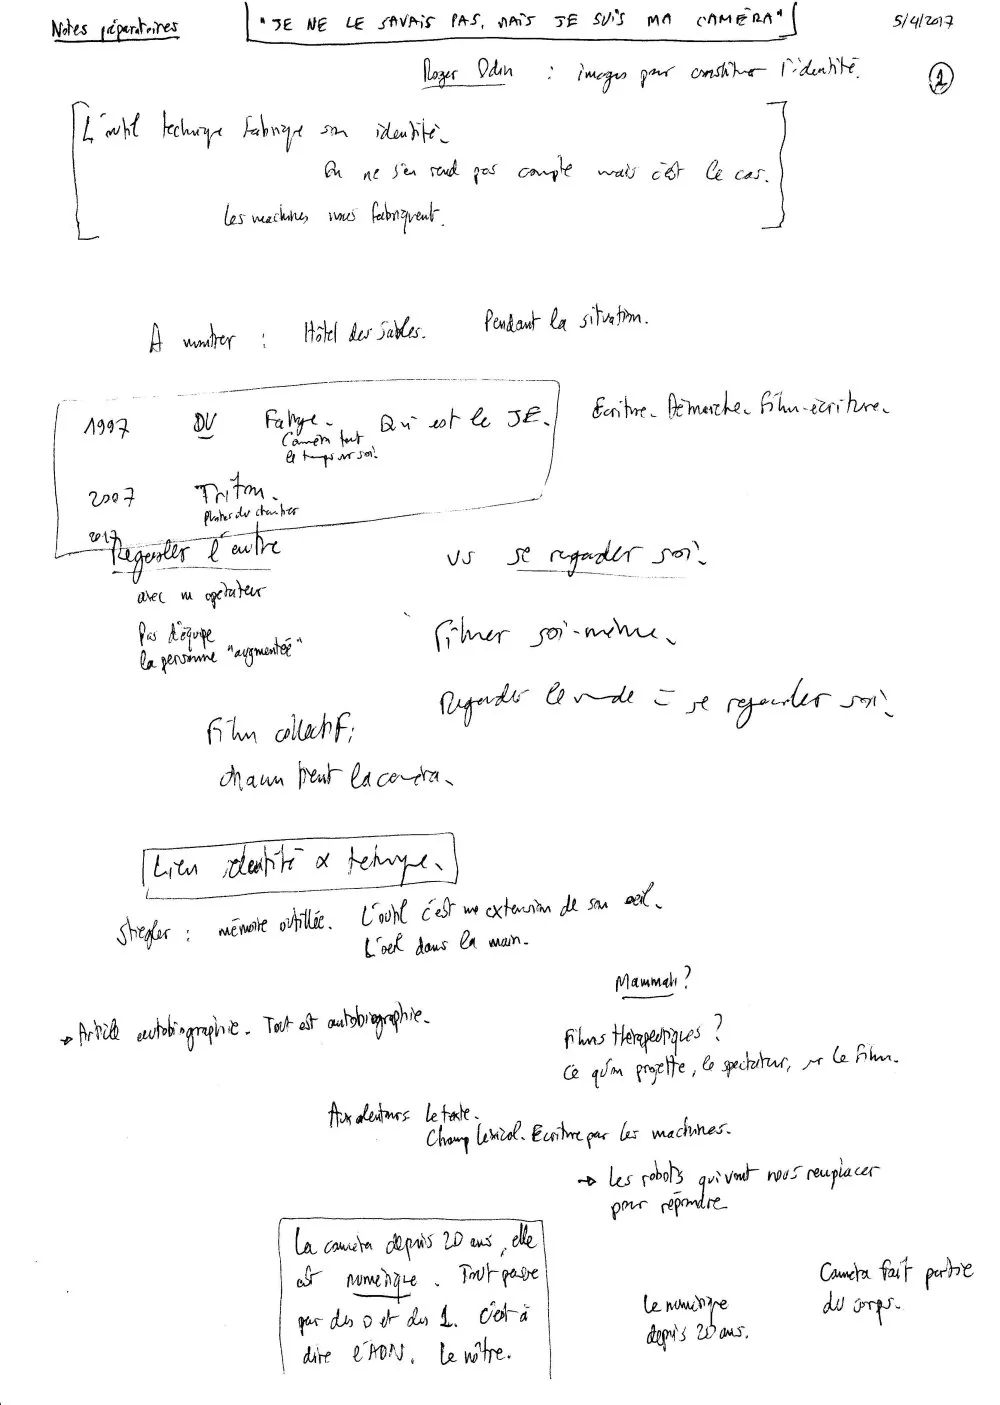 Notes préparatoires
"JE NE LE SAVAIS PAS, MAIS JE SUIS MA CAMÉRA"
5/4/2017
Roger Odin : images pour constituer l'identité.
1
L'outil technique fabrique son identité.
On ne s'en rend pas compte mais c'est le cas.
Les machines nous fabriquent.
A montrer : Hôtel des Sables. Pendant la situation.
1997 DV Fabrique. Qui est le JE.
Caméra tout
le temps sur soi.
Ecriture. Démarche. Film-écriture.
2007 Triton.
Photos du chantier
2017
Regarder l'autre vs se regarder soi.
avec un opérateur
Pas d'équipe
la personne "augmentée"
Filmer soi-même.
Regarder le monde = se regarder soi.
Film collectif;
chacun tient la caméra.
Lien identité & technique.
Stiegler : mémoire outillée. L'outil c'est une extension de son oeil.
L'oeil dans la main.
Mammah?
→ Article autobiographie. Tout est autobiographie.
Films thérapeutiques ?
Ce qu'on projette, le spectateur, sur le film.
Aux alentours le texte.
Champ lexical. Ecriture par les machines.
→ Les robots qui vont nous remplacer
pour répondre
La caméra depuis 20 ans, elle
est numérique. Tout passe
par des 0 et des 1. C'est à
dire l'ADN. Le nôtre.
Le numérique
depuis 20 ans.
Caméra fait partie
du corps.